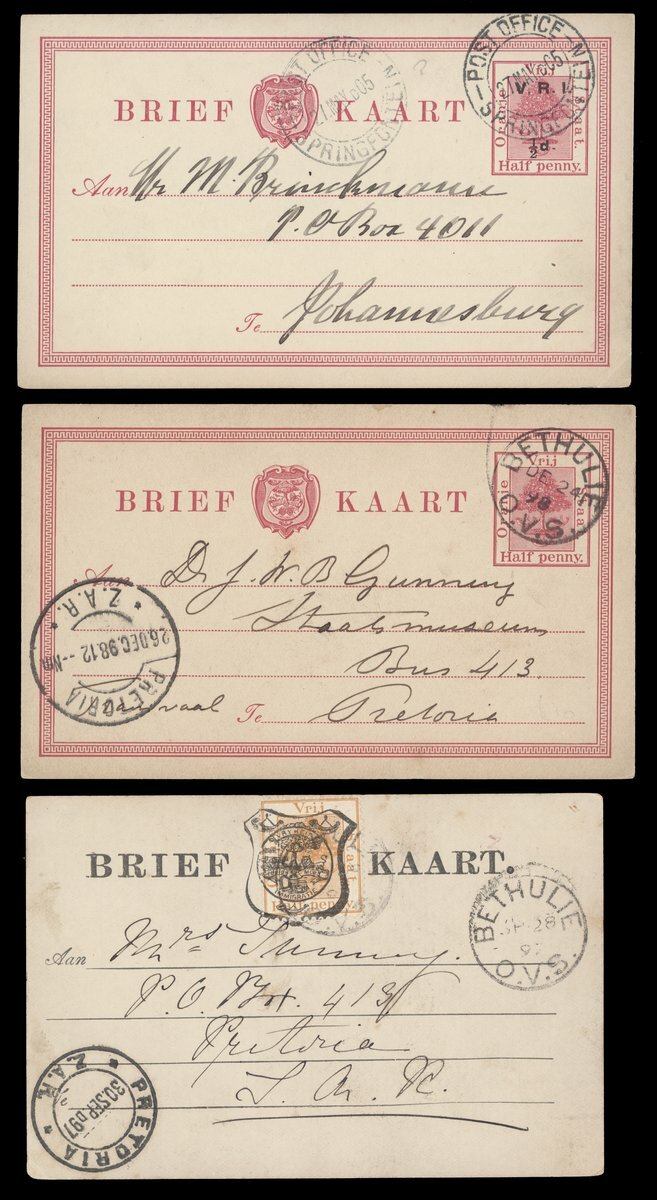 POST OFFICE - SPRINGFONTEIN -
27 MAY 05
POST OFFICE - SPRINGFONTEIN
MAY 05
BRIEF KAART
V. R. I.
Oranje
Staat.
½d.
Half penny.
Aan Mr M. Brinckmann
P.O Box 4011
Te Johannesburg
BETHULIE
DE 24
98
O.V.S.
BRIEF KAART
Vrij
Oranje
Staat.
Half penny.
Aan Dr J. W. B Gunning
Staatsmuseum
Bus 413.
Transvaal Te Pretoria
PRETORIA * Z.A.R. *
26.DEC.98.12--NM
Vrij
Staat
Half penny.
BRIEF KAART.
BETHULIE
SP 28
97
O.V.S.
Aan Mrs Gunning.
P.O. Box. 413
Pretoria
Z. A. R.
* PRETORIA * Z.A.R.
30 SEP 97